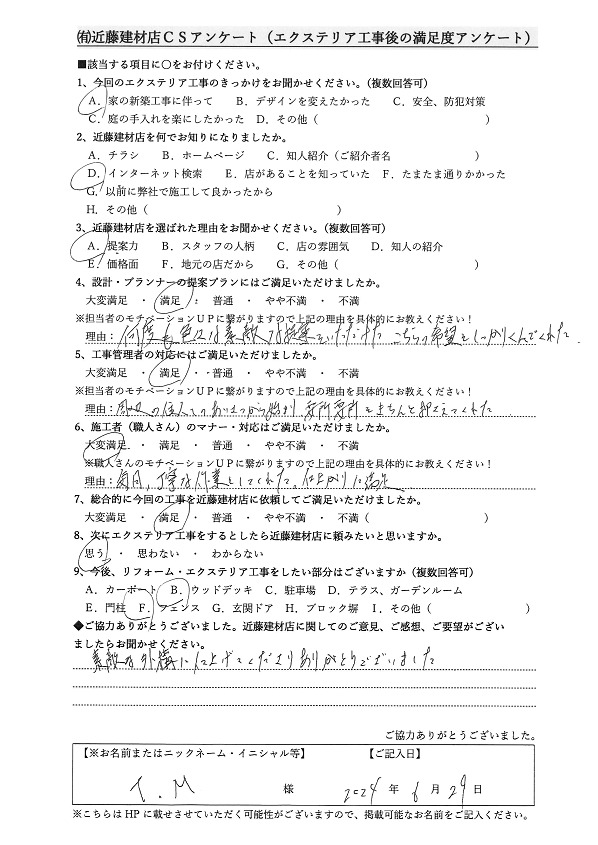 ㈲近藤建材店ＣＳアンケート（エクステリア工事後の満足度アンケート）
■該当する項目に○をお付けください。
1、今回のエクステリア工事のきっかけをお聞かせください。(複数回答可)
A．家の新築工事に伴って　B．デザインを変えたかった　C．安全、防犯対策
C．庭の手入れを楽にしたかった　D．その他（　　　　　）
2、近藤建材店を何でお知りになりましたか。
A．チラシ　B．ホームページ　C．知人紹介（ご紹介者名　　　　　）
D．インターネット検索　E．店があることを知っていた　F．たまたま通りかかった
G．以前に弊社で施工して良かったから
H．その他（　　　　　）
3、近藤建材店を選ばれた理由をお聞かせください。(複数回答可)
A．提案力　B．スタッフの人柄　C．店の雰囲気　D．知人の紹介
E．価格面　F．地元の店だから　G．その他（　　　　　）
4、設計・プランナーの提案プランにはご満足いただけましたか。
大変満足　・　満足　・　普通　・　やや不満　・　不満
※担当者のモチベーションＵＰに繋がりますので上記の理由を具体的にお教えください！
理由：何度も色々な素敵な提案をいただけた こちらの希望をしっかりくんでくれた
5、工事管理者の対応にはご満足いただけましたか。
大変満足　・　満足　・　普通　・　やや不満　・　不満
※担当者のモチベーションＵＰに繋がりますので上記の理由を具体的にお教えください！
理由：周辺の住人へのあいさつから始まり 要所要所をきちんと押えてくれた
6、施工者（職人さん）のマナー・対応はご満足いただけましたか。
大変満足　・　満足　・　普通　・　やや不満　・　不満
※職人さんのモチベーションＵＰに繋がりますので上記の理由を具体的にお教えください！
理由：毎日、丁寧な作業をしてくれた。仕上がりに満足
7、総合的に今回の工事を近藤建材店に依頼してご満足いただけましたか。
大変満足　・　満足　・　普通　・　やや不満　・　不満（　　　　　）
8、次にエクステリア工事をするとしたら近藤建材店に頼みたいと思いますか。
思う　・　思わない　・　わからない
9、今後、リフォーム・エクステリア工事をしたい部分はございますか（複数回答可）
A．カーポート　B．ウッドデッキ　C．駐車場　D．テラス、ガーデンルーム
E．門柱　F．フェンス　G．玄関ドア　H．ブロック塀　I．その他（　　　　　）
◆ご協力ありがとうございました。近藤建材店に関してのご意見、ご感想、ご要望がござい
ましたらお聞かせください。
素敵な外構に仕上げてくださりありがとうございました
ご協力ありがとうございました。
【※お名前またはニックネーム・イニシャル等】　【ご記入日】
T.M　様　2024年6月29日
※こちらはHPに載せさせていただく可能性がございますので、掲載可能なお名前をご記入ください。